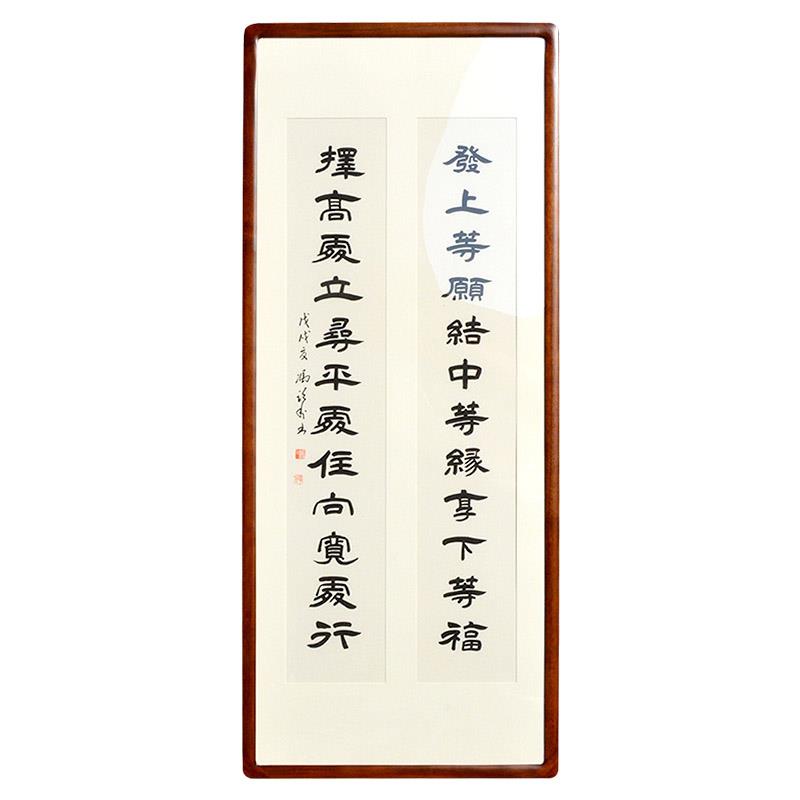 發上等願結中等緣享下等福
擇髙處立尋平處住向寬處行
戊戌夏 馮